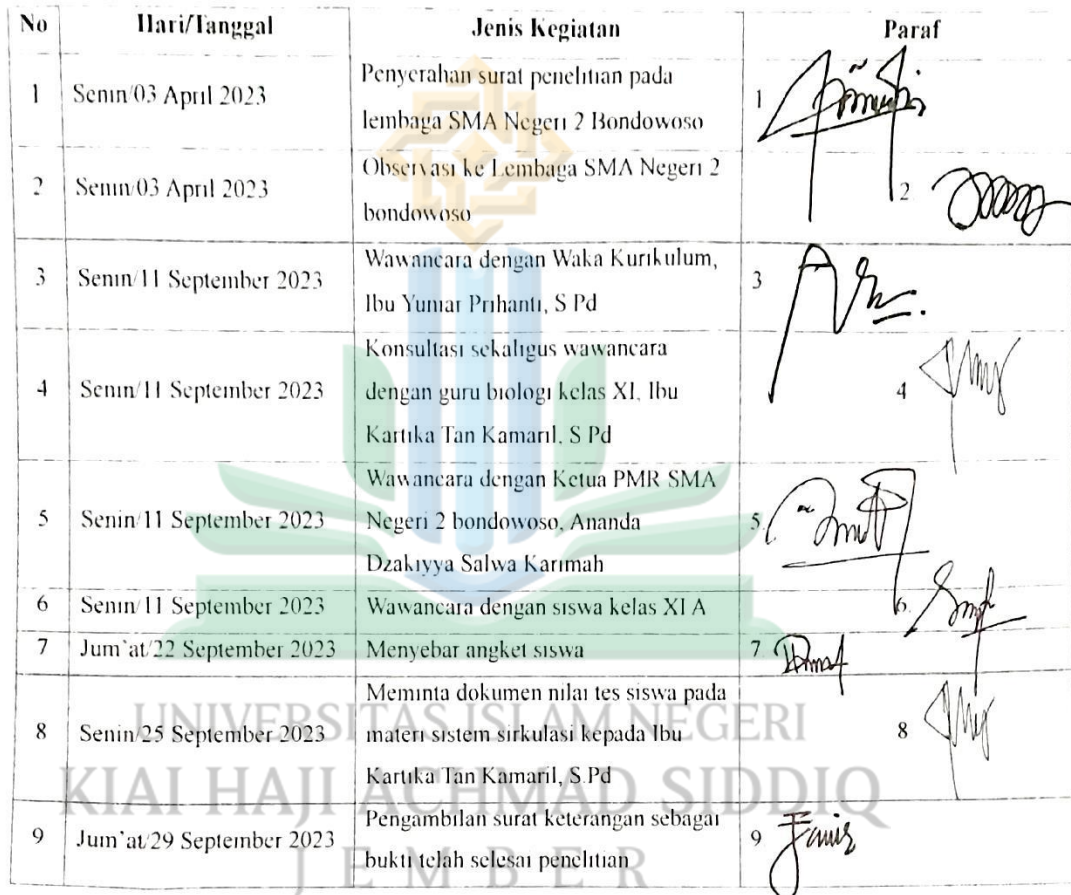 No Hari/Tanggal Jenis Kegiatan Paraf
1 Senin/03 April 2023 Penyerahan surat penelitian pada
lembaga SMA Negeri 2 Bondowoso 1
2 Senin/03 April 2023 Observasi ke Lembaga SMA Negeri 2
bondowoso 2
3 Senin/11 September 2023 Wawancara dengan Waka Kurikulum,
Ibu Yuniar Prihanti, S Pd 3
4 Senin/11 September 2023 Konsultasi sekaligus wawancara
dengan guru biologi kelas XI, Ibu
Kartika Tan Kamaril, S Pd 4
5 Senin/11 September 2023 Wawancara dengan Ketua PMR SMA
Negeri 2 bondowoso, Ananda
Dzakiyya Salwa Karimah 5.
6 Senin/11 September 2023 Wawancara dengan siswa kelas XI A 6.
7 Jum`at/22 September 2023 Menyebar angket siswa 7
8 Senin/25 September 2023 Meminta dokumen nilai tes siswa pada
materi sistem sirkulasi kepada Ibu
Kartika Tan Kamaril, S.Pd 8
9 Jum`at/29 September 2023 Pengambilan surat keterangan sebagai
bukti telah selesai penelitian 9
UNIVERSITAS ISLAM NEGERI
KIAI HAJI ACHMAD SIDDIQ
JEMBER